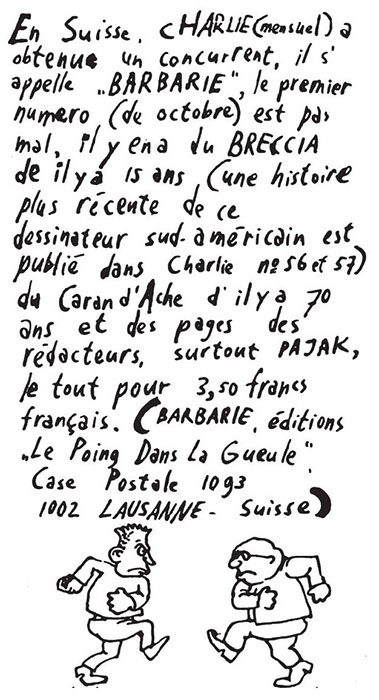 En Suisse, CHARLIE (mensuel) a
obtenue un concurrent, il s'
appelle „BARBARIE", le premier
numero (de octobre) est pas
mal, il y en a du BRECCIA
de il y a 15 ans (une histoire
plus récente de ce
dessinateur sud-américain est
publié dans Charlie nº 56 et 57)
du Caran d'Ache d'il y a 70
ans et des pages des
rédacteurs, surtout PAJAK,
le tout pour 3,50 francs
français. (BARBARIE, éditions
„Le Poing Dans La Gueule"
Case Postale 1093
1002 LAUSANNE - Suisse)